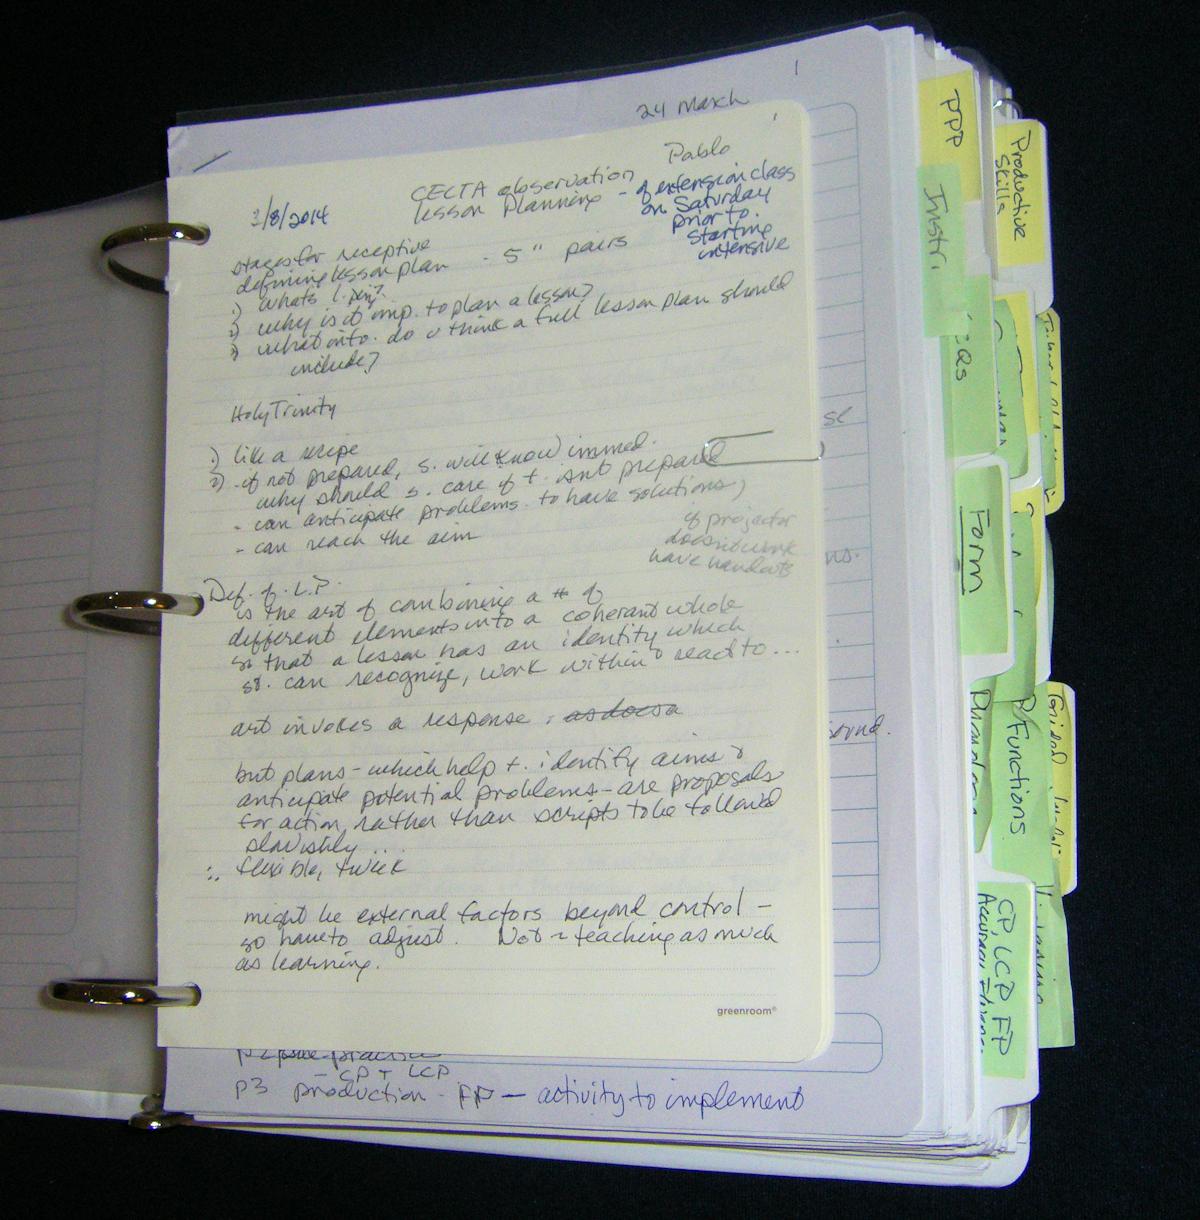 24 March
Pablo
CELTA observation
3/8/2014
lesson planning - of extension class
on Saturday
prior to
starting
intensive
stages for receptive
defining lesson plan - 5" pairs
1) whats l. png?
2) why is it imp. to plan a lesson?
3) what info. do u think a full lesson plan should
include?
Holy Trinity
1) like a recipe
2) - if not prepared, s. will know immed.
why should s. care if t. isnt prepared
- can anticipate problems to have solutions;
- can reach the aim
if projector
doesnt work
have handouts
Def. of L.P.
is the art of combining a # of
different elements into a coherant whole
so that a lesson has an identity which
st. can recognize, work within & react to...
art invokes a response. as does a
but plans - which help t. identify aims &
anticipate potential problems - are proposals
for action rather than scripts to be followed
slavishly...
∴ flexible, tweek
might be external factors beyond control -
so have to adjust. Not teaching as much
as learning.
greenroom®
- CP + LCP
P3 production - FP — activity to implement
se
ns.
ound.
PPP
Productive
Skills
Instr.
CQs
Form
Functions
CP, LCP, FP
Accuracy